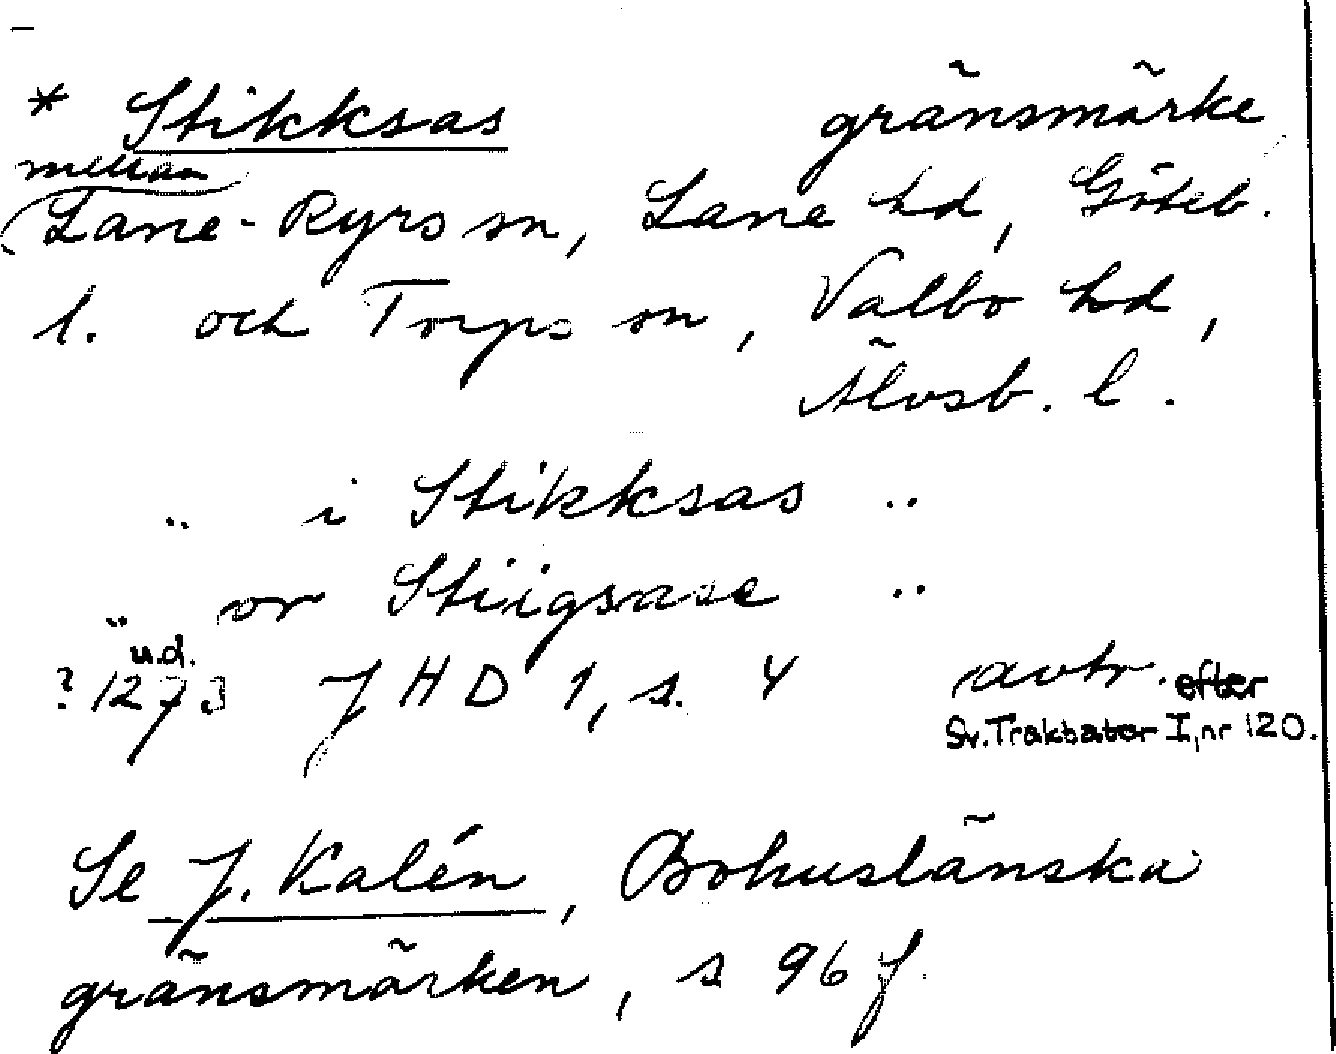 * Stikksas gränsmärke
mellan
(Lane-Ryrs sn, Lane hd, Göteb.
l. och Torps sn, Valbo hd,
Älvsb. l.
.. i Stikksas ..
.. or Stiigsase ..
u.d.
? 1273 JHD 1, s. 4 avtr. efter
Sv. Traktater I, nr 120.
Se J. Kalén, Bohuslänska
gränsmärken, s 96 f.